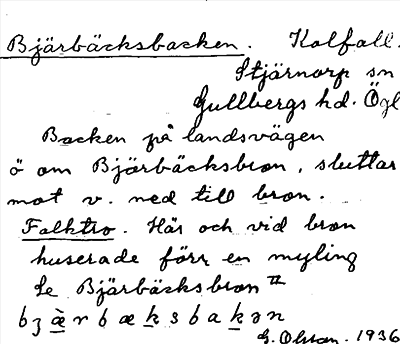 Bjärbäcksbacken. Kolfall.
Stjärnorp sn
Gullbergs hd. Ögl
Backen på landsvägen
ö om Bjärbäcksbron, sluttar
mot v. ned till bron.
Folktro. Här och vid bron
huserade förr en myling
Se Bjärbäcksbron II
bʒæ̀rbæksbakən
G. Olson. 1936